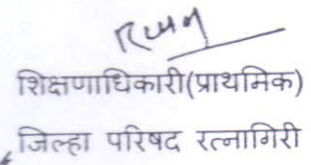 शिक्षणाधिकारी(प्राथमिक)
जिल्हा परिषद रत्नागिरी